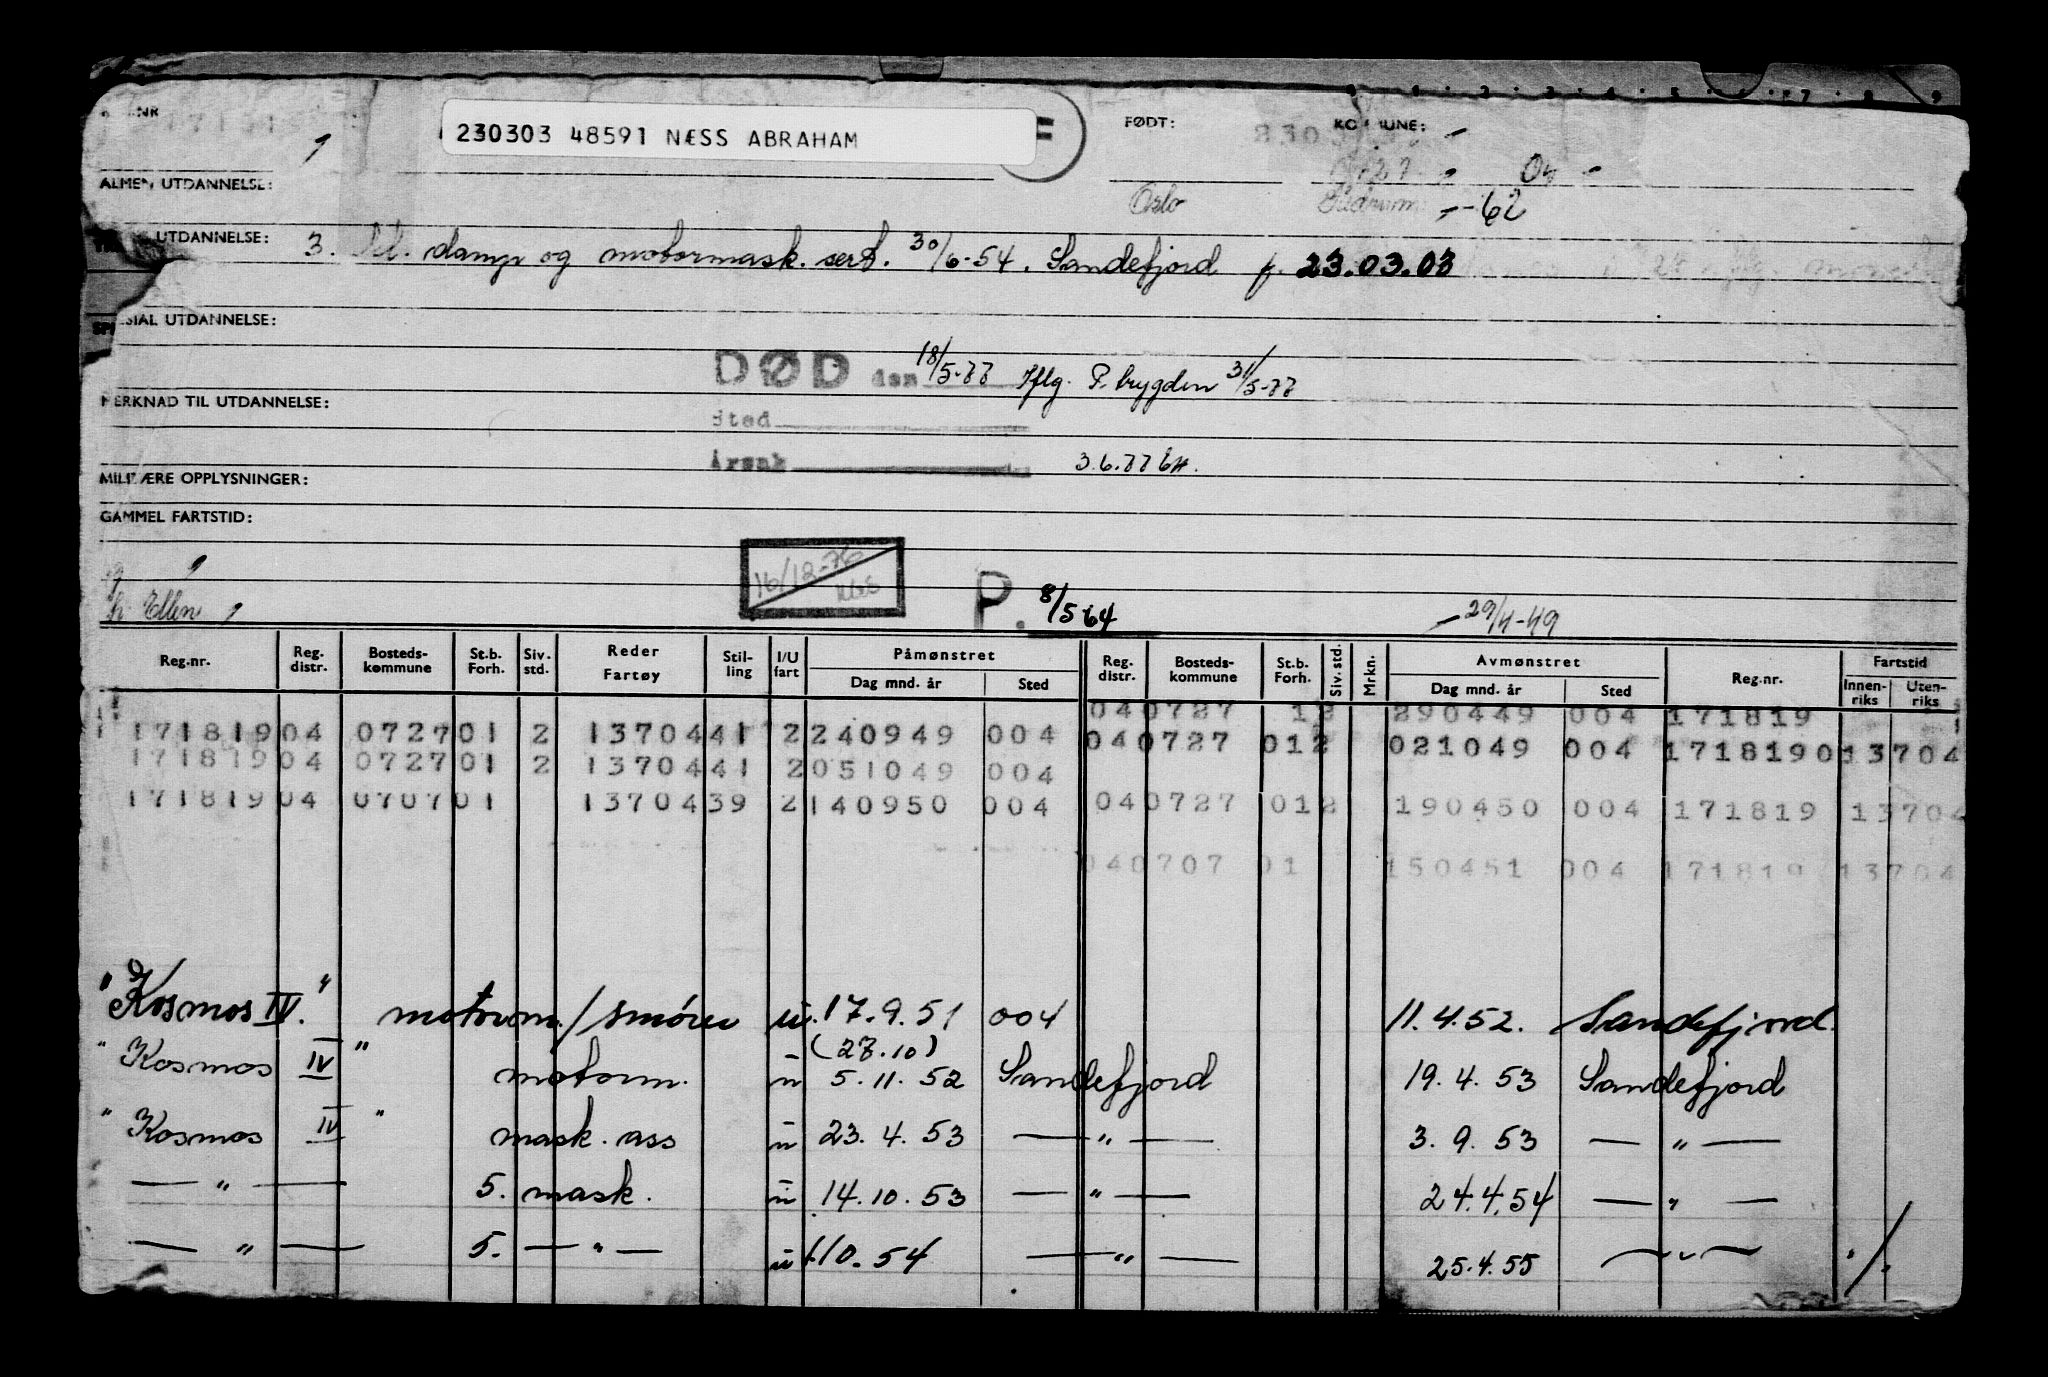 230303 48591 NÆSS ABRAHAM
FØDT:
KOMMUNE:
Oslo
-62
ALMEN UTDANNELSE:
UTDANNELSE: 3. kl. damp og motormask. sert. 30/6-54. Sandefjord f. 23.03.03
SPESIAL UTDANNELSE:
DØD den 18/5-77 Iflg. P. trygden 31/5-77
MERKNAD TIL UTDANNELSE:
Sted
Årsak 3.6.77
MILITÆRE OPPLYSNINGER:
GAMMEL FARTSTID:
16/12-76
Ellen
P. 8/5 64
29/4-49
Reg.nr. Reg. distr. Bosteds-kommune St.b. Forh. Siv. std. Reder Fartøy Stil-ling I/U fart Påmønstret Dag mnd. år Sted Reg. distr. Bosteds-kommune St.b. Forh. Siv. std. Mrkn. Avmønstret Dag mnd. år Sted Reg.nr. Fartstid Innen-riks Uten-riks
040727 12 290449 004 171819
171819 04 0727 01 2 13704 41 2 240949 004 040727 012 021049 004 1718190 13704
171819 04 0727 01 2 13704 41 2 051049 004
171819 04 0707 01 13704 39 2 140950 004 040727 012 190450 004 171819 13704
040707 01 150451 004 171819 13704
"Kosmos IV." motorm./smører u. 17.9.51 004 11.4.52. Sandefjord.
(27.10)
"Kosmos IV" motorm. u 5.11.52 Sandefjord 19.4.53 Sandefjord
"Kosmos IV" mask. ass u 23.4.53 — " — 3.9.53 — " —
— " — 5. mask. u 14.10.53 — " — 24.4.54 — " —
— " — 5. — " — u 1.10.54 — " — 25.4.55 — " — ./.